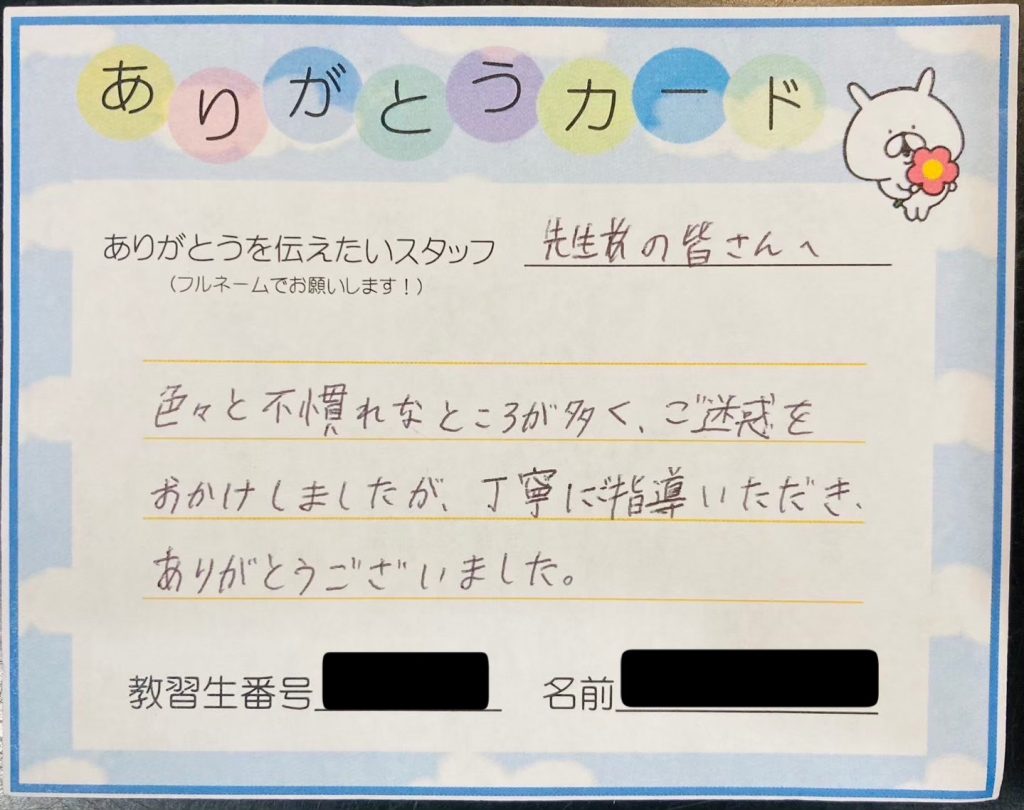 ありがとうカード
ありがとうを伝えたいスタッフ 先生方の皆さんへ
(フルネームでお願いします!)
色々と不慣れなところが多く、ご迷惑を
おかけしましたが、丁寧にご指導いただき、
ありがとうございました。
教習生番号 名前